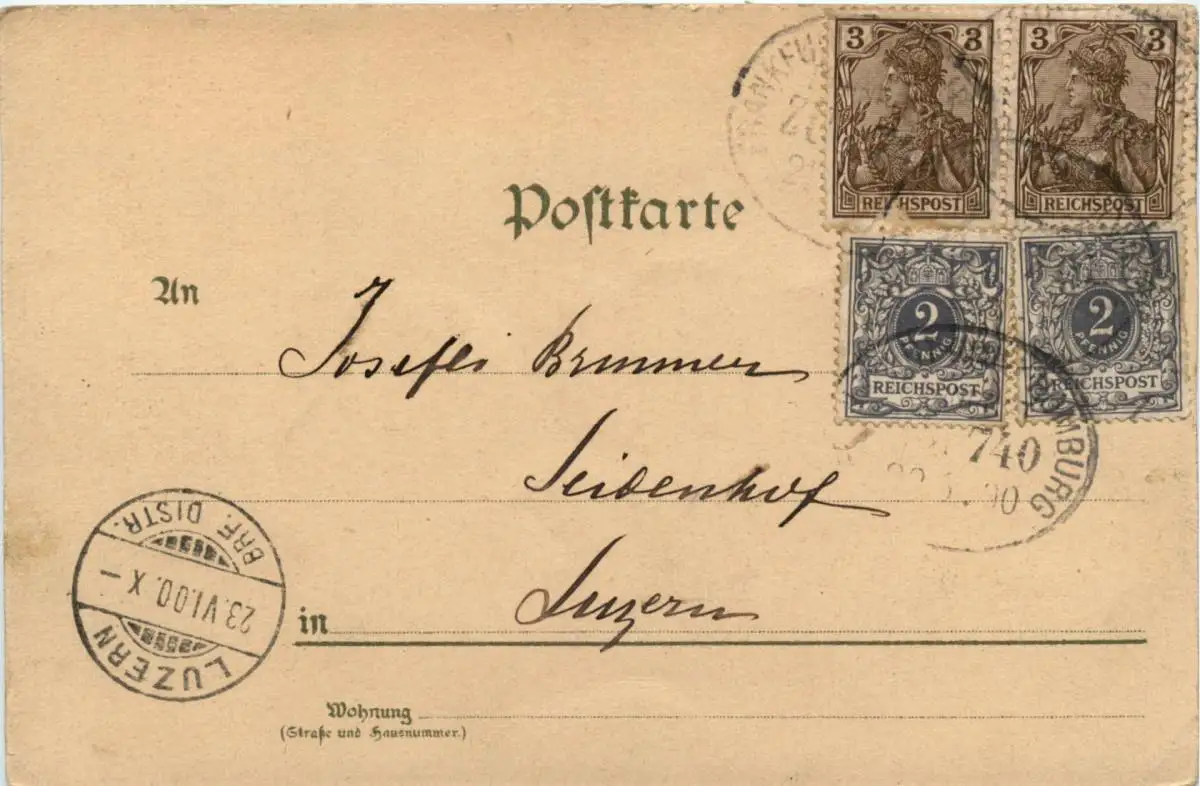 3 3
REICHSPOST
3 3
REICHSPOST
2
PFENNIG
REICHSPOST
2
PFENNIG
REICHSPOST
740
HOMBURG
Postkarte
An
Brunner
Seidenhof
in Luzern
BRF. DISTR.
23.VI.00.X-
LUZERN
Wohnung
(Straße und Hausnummer.)